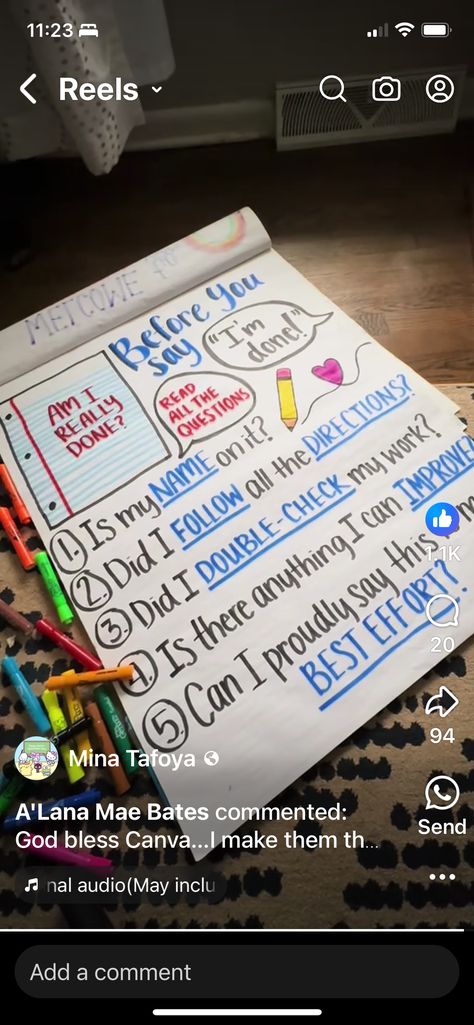 11:23
Reels
WELCOME to
Before you
say
"I'm
done!"
AM I
REALLY
DONE?
READ
ALL THE
QUESTIONS
1. Is my NAME on it?
2. Did I FOLLOW all the DIRECTIONS?
3. Did I DOUBLE-CHECK my work?
4. Is there anything I can IMPROVE
5. Can I proudly say this is
BEST EFFORT?
1.1K
20
94
Send
Mina Tafoya
A'Lana Mae Bates commented:
God bless Canva...I make them th...
nal audio(May inclu
Add a comment